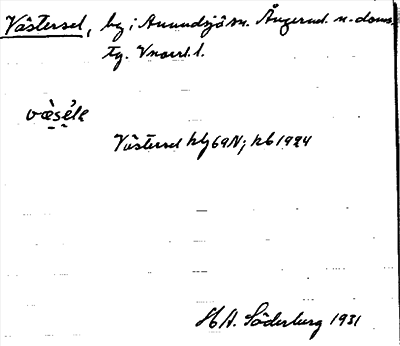 Västersel, by i Anundsjö sn. Ångerml. n. doms.
tg. Vnorrl. l.
væsęlɛ
Västersel hfl 69N; kb 1924
H A. Söderberg 1931